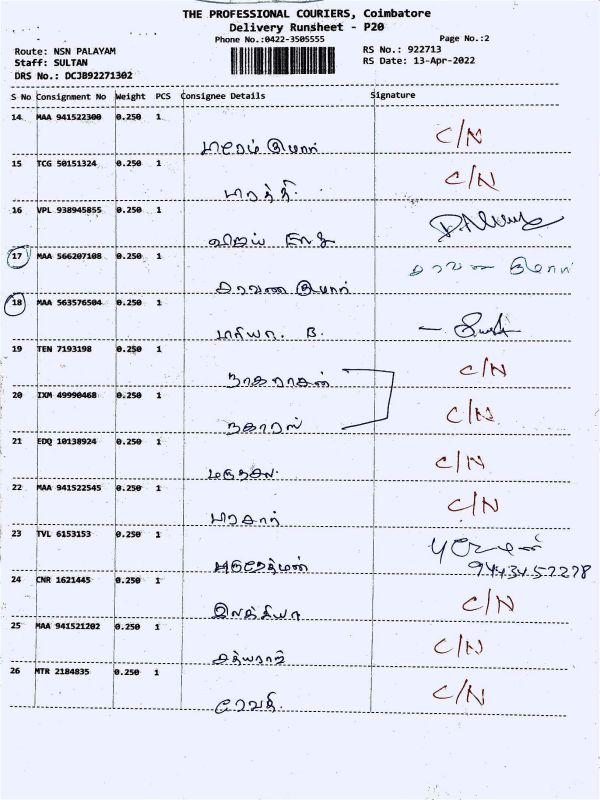 THE PROFESSIONAL COURIERS, Coimbatore
Delivery Runsheet - P20
Phone No.:0422-3505555 Page No.:2
Route: NSN PALAYAM RS No.: 922713
Staff: SULTAN RS Date: 13-Apr-2022
DRS No.: DCJB92271302
S No Consignment No Weight PCS Consignee Details Signature
14 MAA 941522300 0.250 1
C/N
15 TCG 50151324 0.250 1
C/N
பாரத்தி.
16 VPL 938945855 0.250 1
விஜய்
17 MAA 566207108 0.250 1
சரவண குமார்
சரவண குமார்
18 MAA 563576504 0.250 1
மரியா. B.
19 TEN 7193198 0.250 1
C/N
நாகராகன்
20 IXM 49990468 0.250 1
C/N
21 EDQ 10138924 0.250 1
C/N
22 MAA 941522545 0.250 1
C/N
23 TVL 6153153 0.250 1
9443457278
24 CNR 1621445 0.250 1
C/N
இலக்கியா
25 MAA 941521202 0.250 1
C/N
சத்யராஜ்
26 MTR 2184835 0.250 1
C/N
ரேவதி.